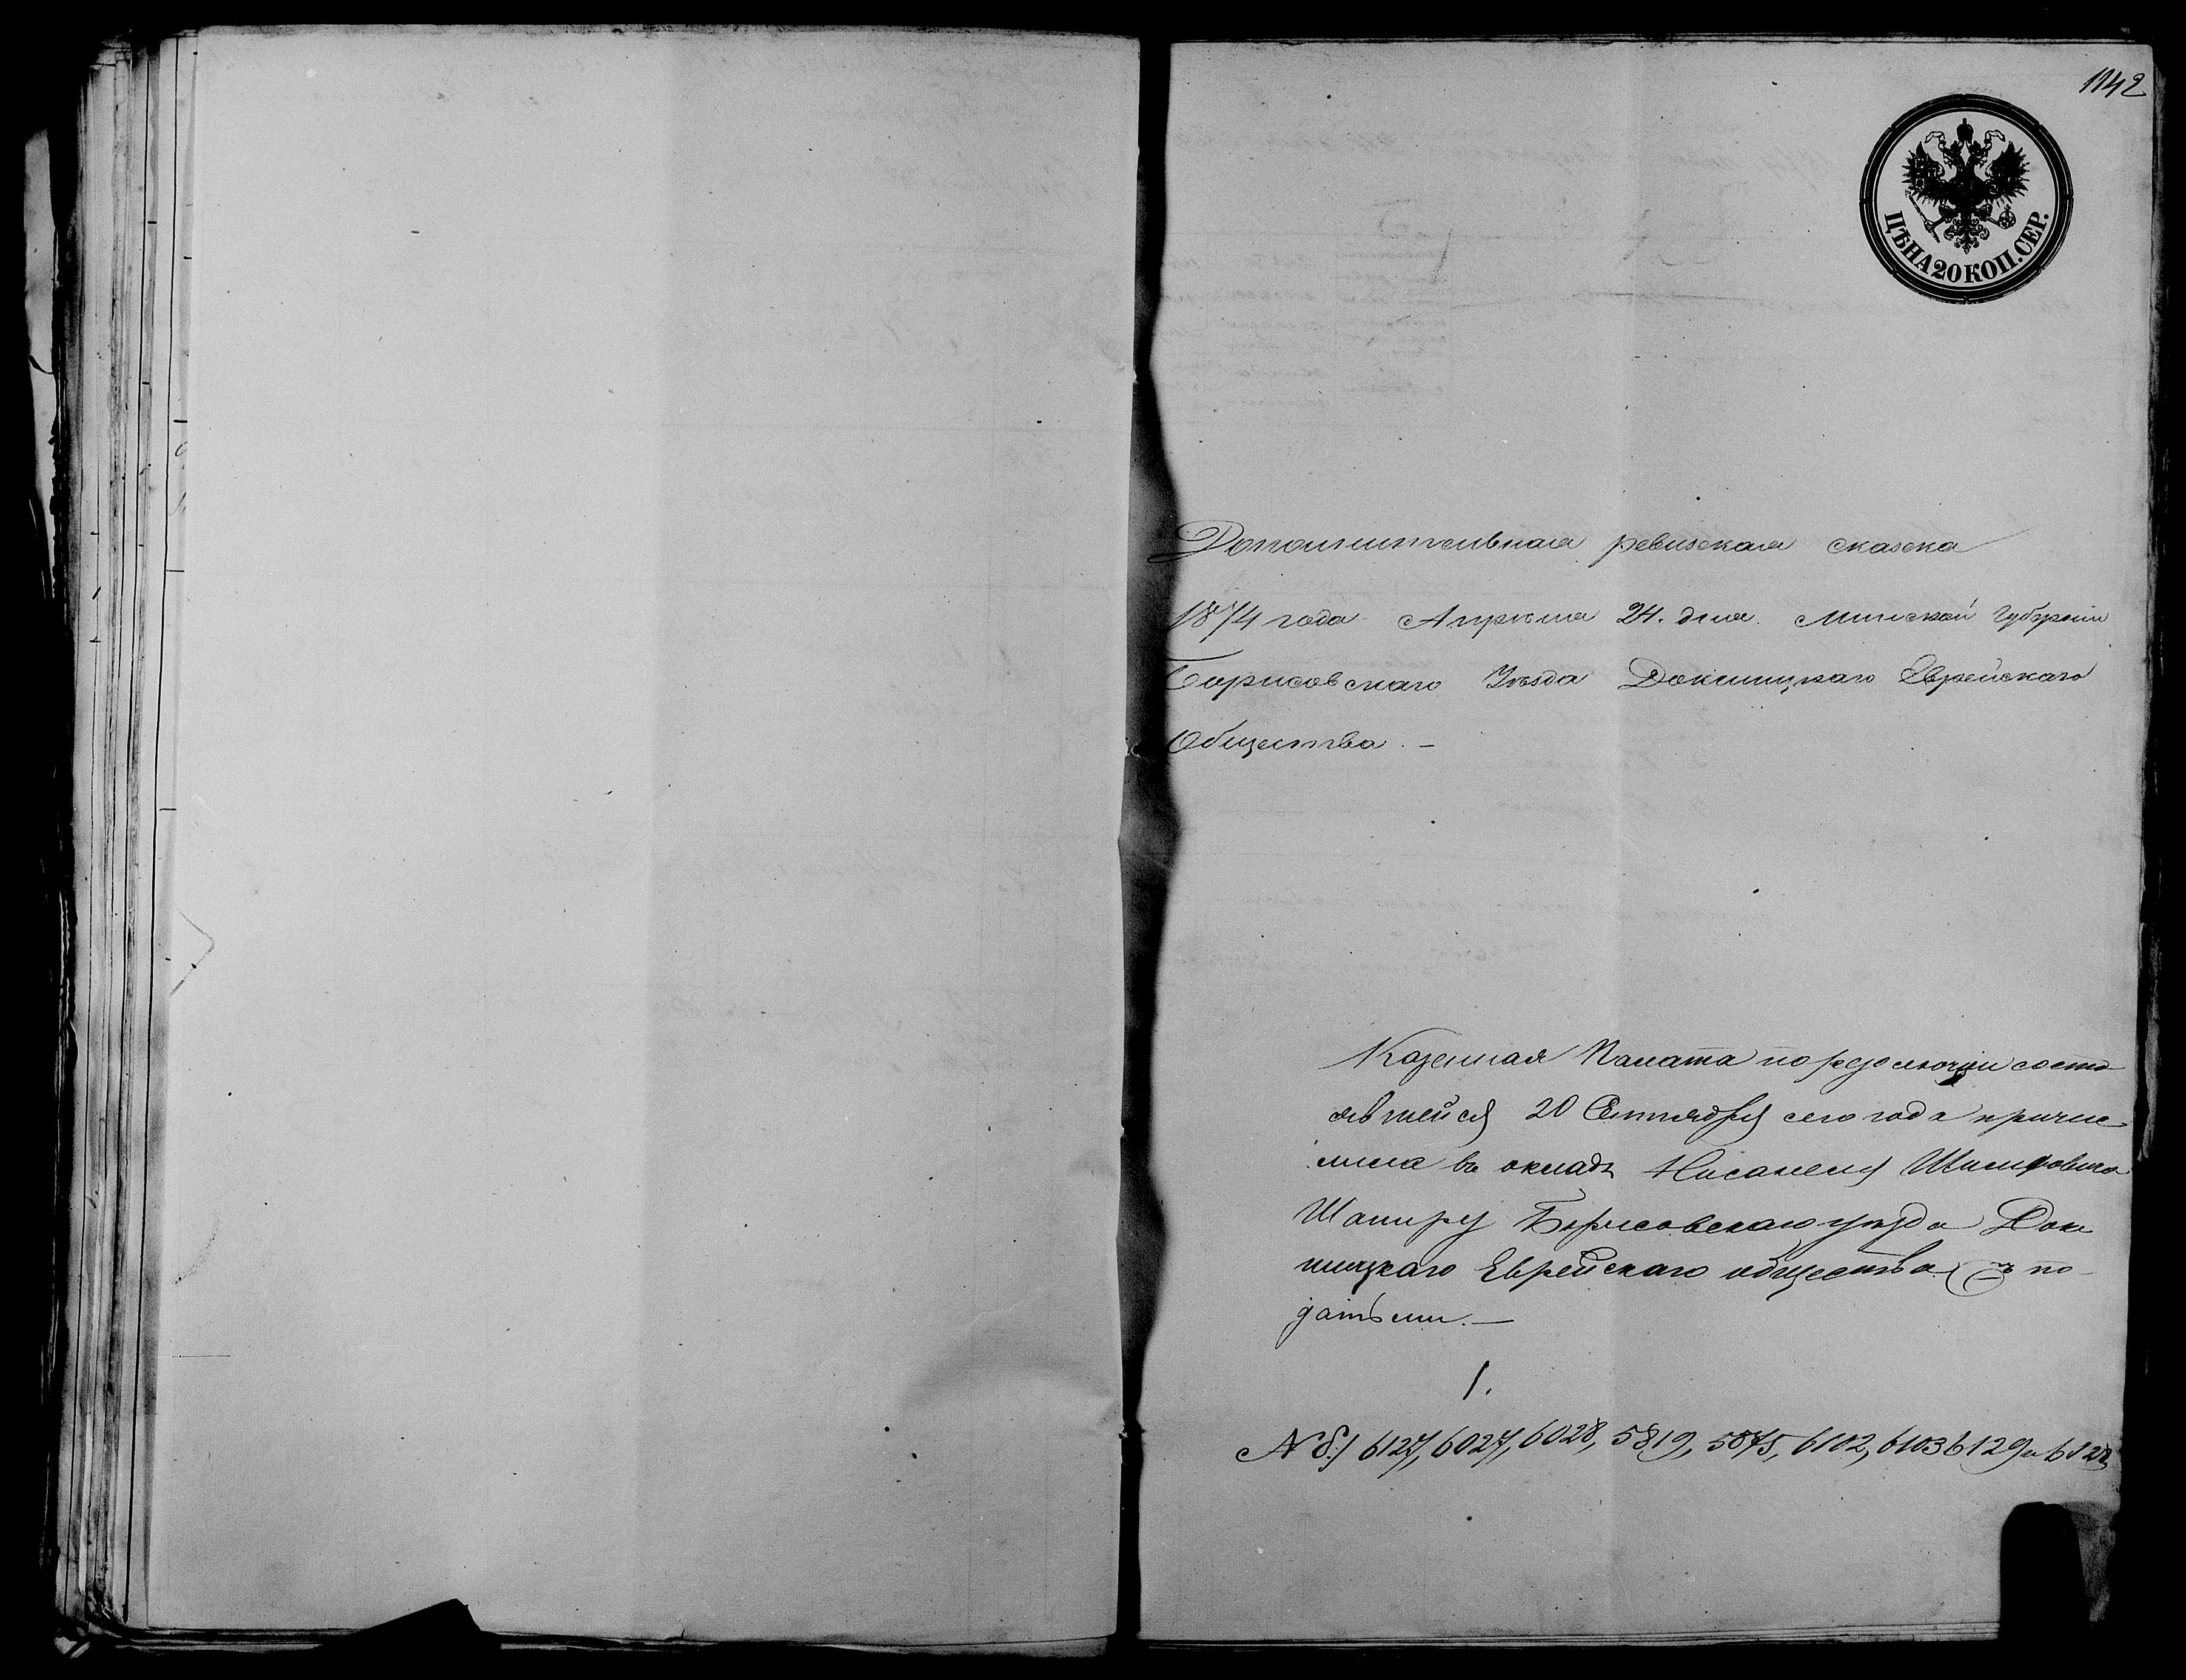 1142
ЦѢНА 20 КОП. СЕР.
Дополнительная ревизская сказка
1874 года Апрѣля 24. дня. Минской Губерніи
Борисовскаго Уѣзда Докшицкаго Еврейскаго
Общества. –
Казенная Палата по резолюціи состо
явшейся 20 Сентября сего года причис
лила въ окладъ
Шапиру Борисовскаго уѣзда Док
шицкаго Еврейскаго общества по
1.
6127, 6027, 6028, 5819, 5875, 6102, 6103 6129 и